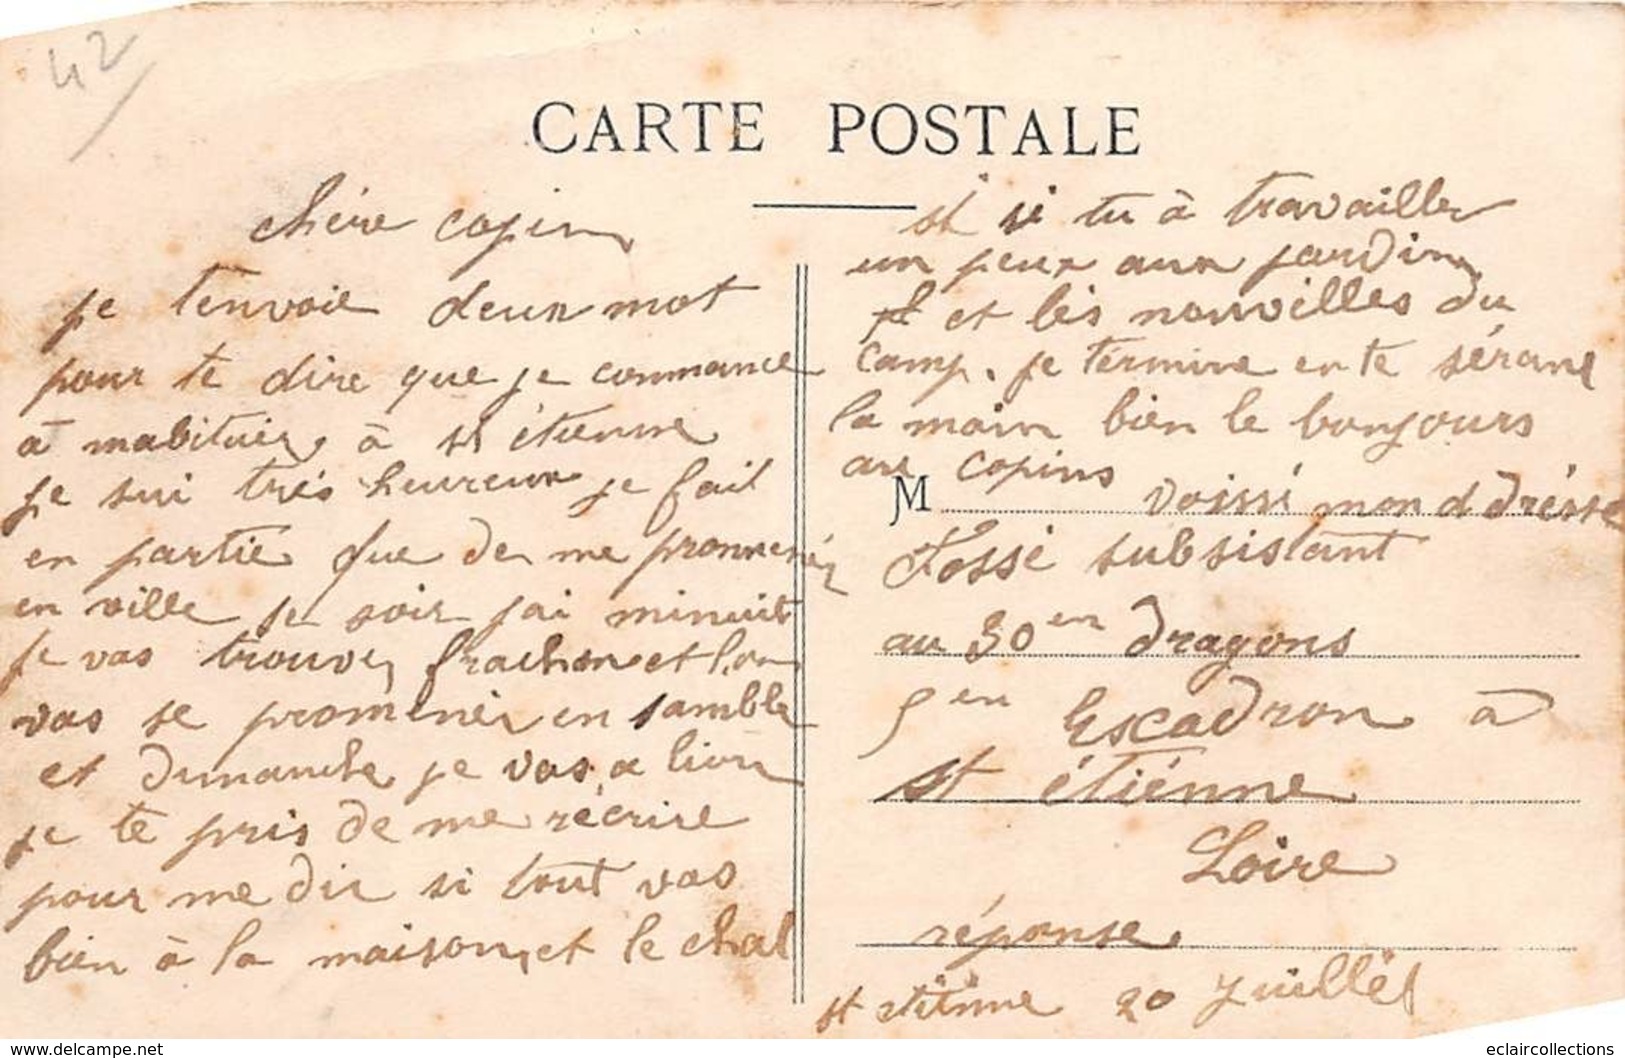 42
CARTE POSTALE
chére copin
je tenvoie deux mot
pour te dire que je commance
à mabituer à st étienne
je sui trés heureux je fait
en partie que de me promener
en ville le soir jai minuit
je vas trouver frachon et lon
vas se promener en samble
et dimanche je vas a lion
je te pris de me récrire
pour me dir si tout vas
bien à la maison, et le chal
et si tu à travailler
un peux aux jardin
et les nouvelles du
camp. je termine en te sérant
la main bien le bonjours
au copins
M
voissi mon ddrésse
Fossé subsistant
au 30en dragons
5en Escadron à
st étiénne
Loire
réponse
st etienne 20 juillet
www.delcampe.net
eclaircollections